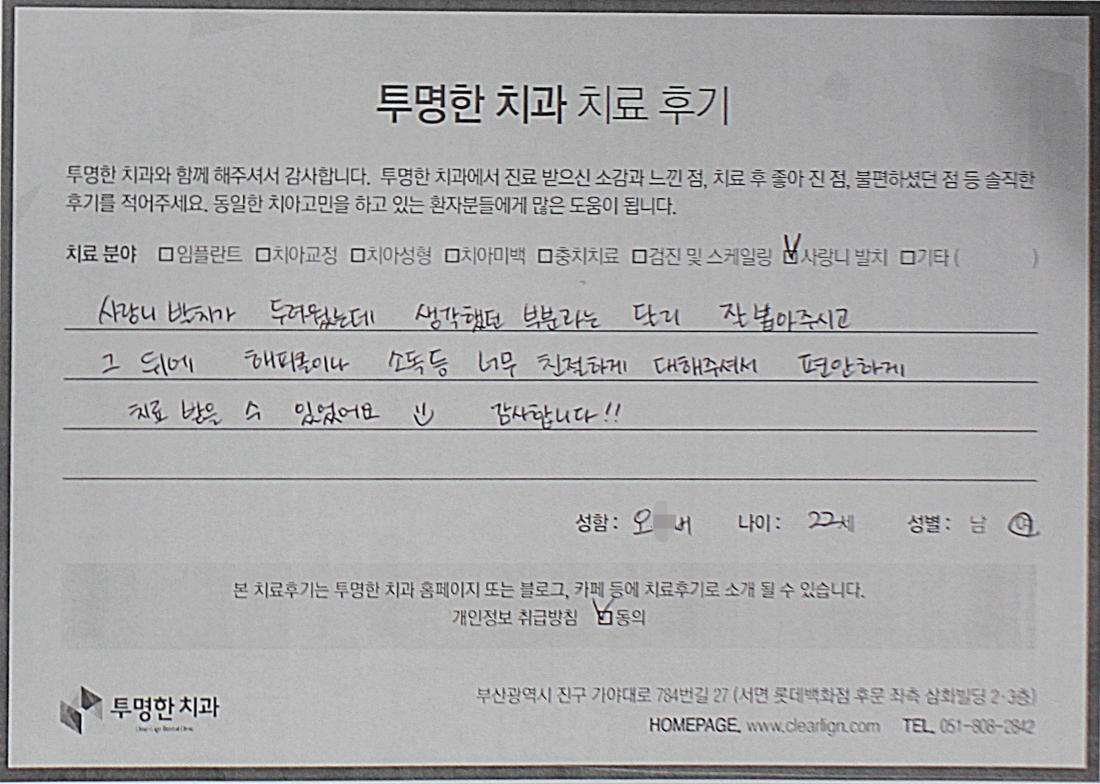 투명한 치과 치료 후기
투명한 치과와 함께 해주셔서 감사합니다. 투명한 치과에서 진료 받으신 소감과 느낀 점, 치료 후 좋아 진 점, 불편하셨던 점 등 솔직한
후기를 적어주세요. 동일한 치아고민을 하고 있는 환자분들에게 많은 도움이 됩니다.
치료 분야 □임플란트 □치아교정 □치아성형 □치아미백 □충치치료 □검진 및 스케일링 ☑사랑니 발치 □기타 ( )
사랑니 발치가 두려웠는데 생각했던 부분과는 달리 잘 뽑아주시고
그 뒤에 해피콜이나 소독등 너무 친절하게 대해주셔서 편안하게
치료 받을 수 있었어요 감사합니다!!
성함: 오 나이: 22세 성별: 남 여
본 치료후기는 투명한 치과 홈페이지 또는 블로그, 카페 등에 치료후기로 소개 될 수 있습니다.
개인정보 취급방침 ☑동의
투명한 치과
부산광역시 진구 가야대로 784번길 27 (서면 롯데백화점 후문 좌측 삼화빌딩 2·3층)
HOMEPAGE. www.clearlign.com TEL. 051-808-2842